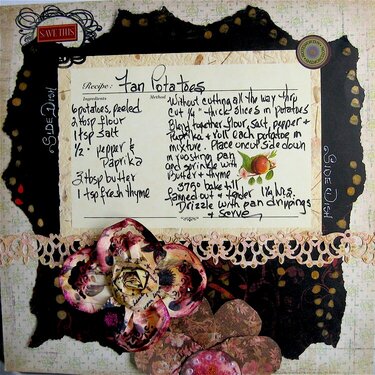 SAVE THIS
Recipe: Fan Potatoes
Ingredients
6 potatoes, peeled
3 tbsp flour
1 tsp salt
1/2 " pepper &
Paprika
3 tbsp butter
1 tsp fresh thyme
Method
Without cutting all the way thru
cut 1/4" thick slices in potatoes
Blend together flour, salt, pepper +
Paprika + roll each potatoe in
mixture. Place uncut side down
in roasting pan
and sprinkle with
Butter + thyme
375° bake till
fanned out + tender 1 1/4 hrs.
Drizzle with pan drippings
+ serve
SIDE DISH
SIDE DISH